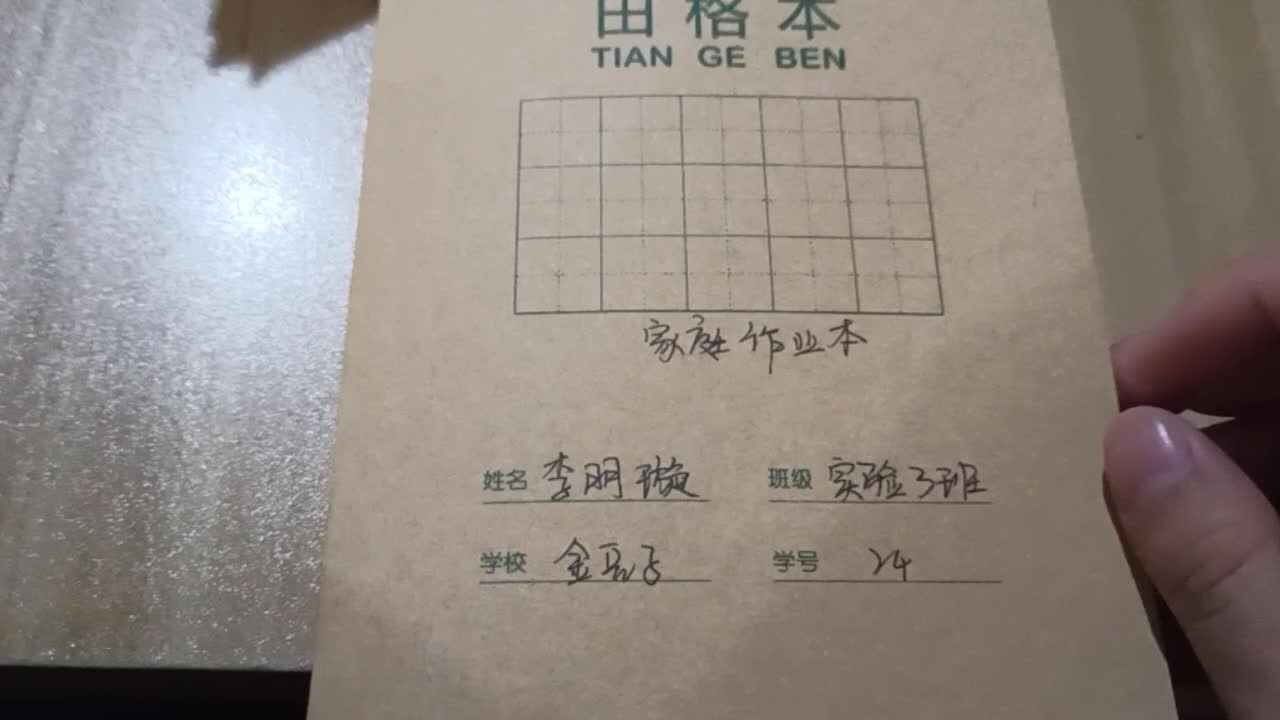 田格本
TIAN GE BEN
家庭作业本
姓名 李明璇 班级 实验3班
学校 金马子 学号 24